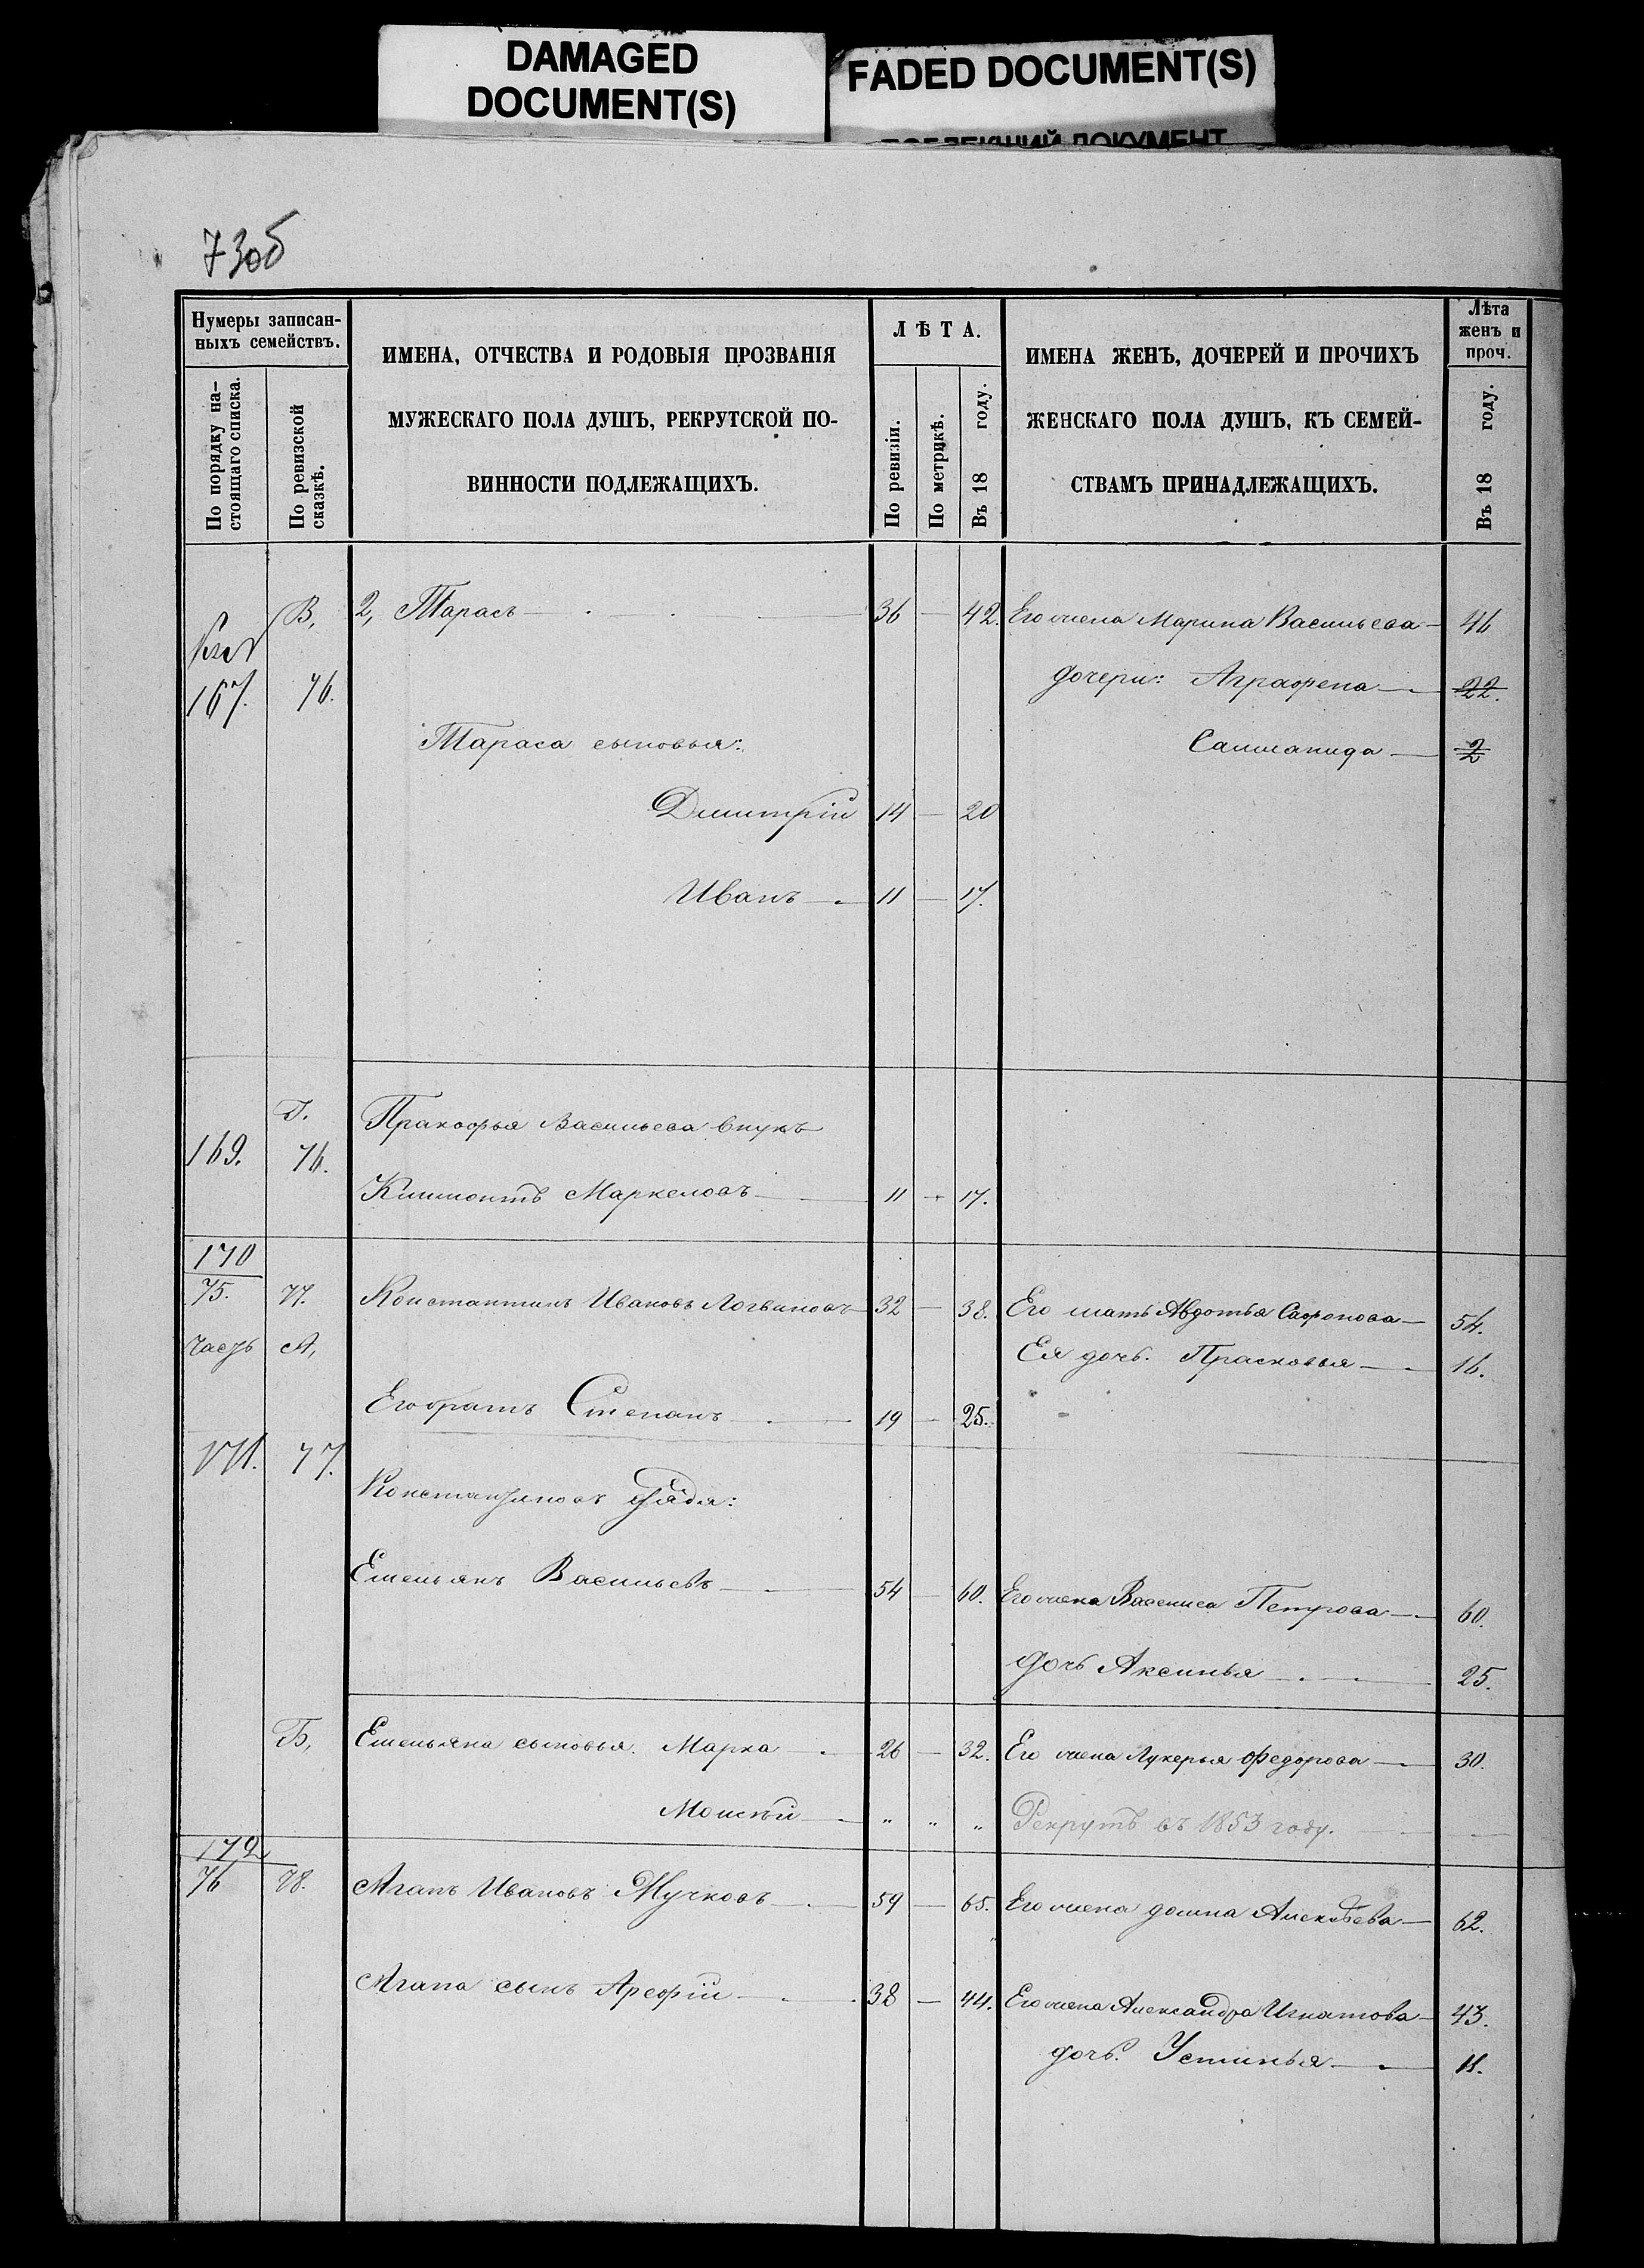 DAMAGED
DOCUMENT(S)
FADED DOCUMENT(S)
ПОБЛЕКШИЙ ДОКУМЕНТ
73об
Нумеры записан-
ныхъ семействъ.
По порядку на-
стоящаго списка.
По ревизской
сказкѣ.
ИМЕНА, ОТЧЕСТВА И РОДОВЫЯ ПРОЗВАНІЯ
МУЖЕСКАГО ПОЛА ДУШЪ, РЕКРУТСКОЙ ПО-
ВИННОСТИ ПОДЛЕЖАЩИХЪ.
ЛѢТА.
По ревизіи.
По метрикѣ.
Въ 18 году.
ИМЕНА ЖЕНЪ, ДОЧЕРЕЙ И ПРОЧИХЪ
ЖЕНСКАГО ПОЛА ДУШЪ, КЪ СЕМЕЙ-
СТВАМЪ ПРИНАДЛЕЖАЩИХЪ.
Лѣта
женъ и
проч.
Въ 18 году.
В, 2, Тарасъ 36 — 42. Его жена Марина Васильева 46
167. 76. дочери: Аграфена 22.
Тараса сыновья: 2
Дмитрій 14 — 20
Иванъ 11 — 17.
Г. Пракофья Васильева внукъ
169. 76.
Климонтъ Маркеловъ 11 — 17.
170
75. 77. Константинъ Ивановъ Логвиновъ 32 — 38. Его мать Авдотья Сафонова 54.
часть А, Ея дочь. Прасковья 16.
Его братъ Степанъ 19 — 25.
171. 77.
Константиновъ дядя:
Емельянъ Васильевъ 54 — 60. Его жена Василиса Петрова 60.
дочь Аксинья 25.
Б, Емельяна сыновья. Марка 26 — 32. Его жена Лукерья Федорова 30.
Моисѣй " " " Рекрутъ въ 1853 году.
172
76 78. Агапъ Ивановъ Мучковъ 59 — 65. Его жена домна Алексѣева 62.
Агапа сынъ Арефій 38 — 44. Его жена Александра Игнатова 43.
дочь. Устинья 11.